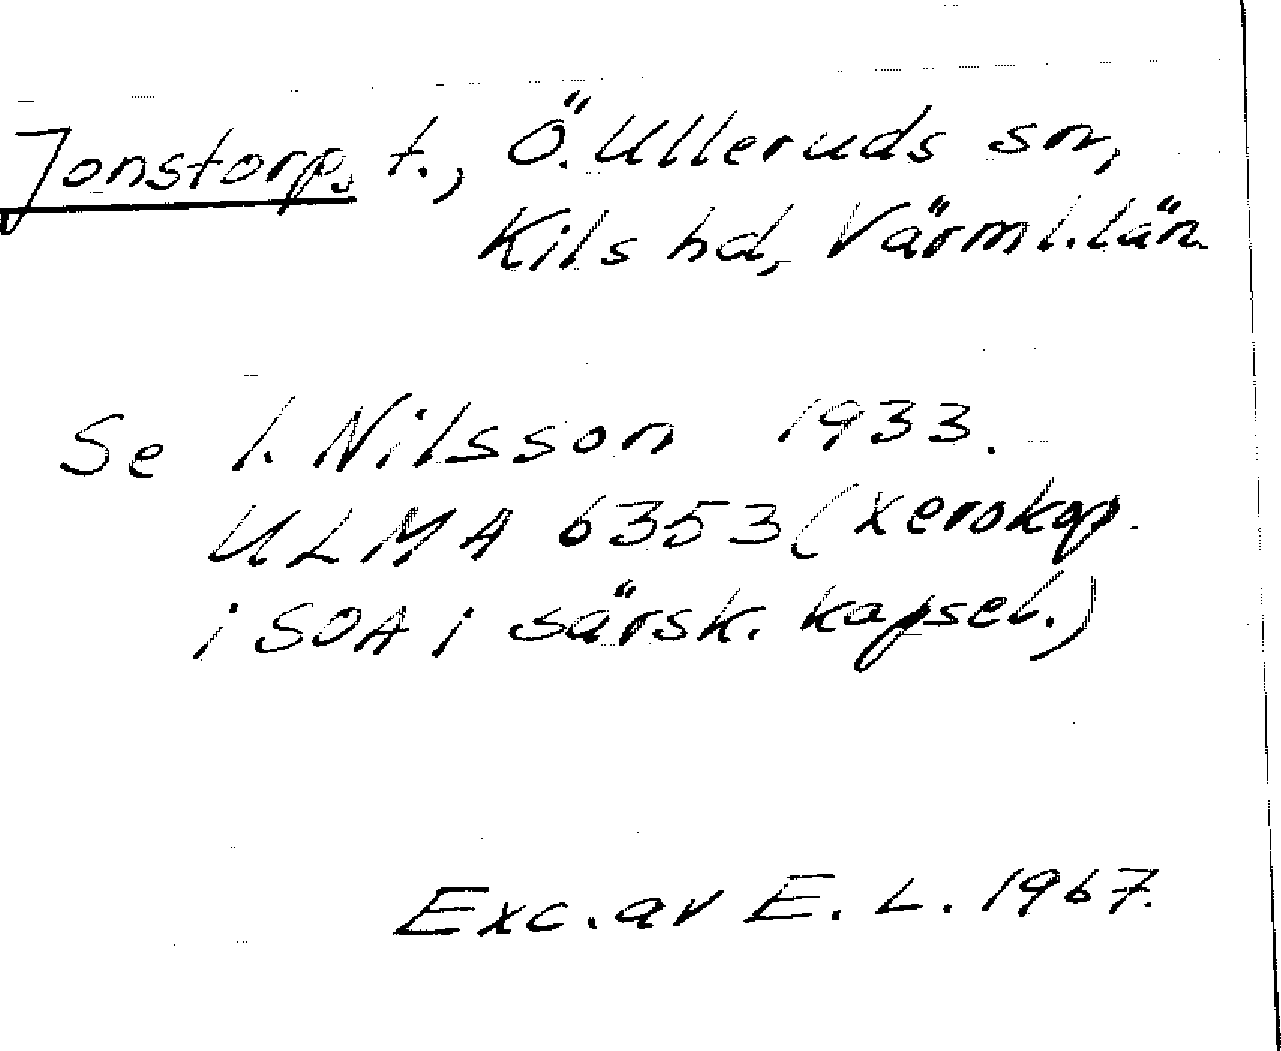 Jonstorp, t., Ö. Ulleruds sn,
Kils hd, Värml. län.
Se I. Nilsson 1933.
ULMA 6353 (xerokop.
i SOA i särsk. kapsel.)
Exc. av E. L. 1967.